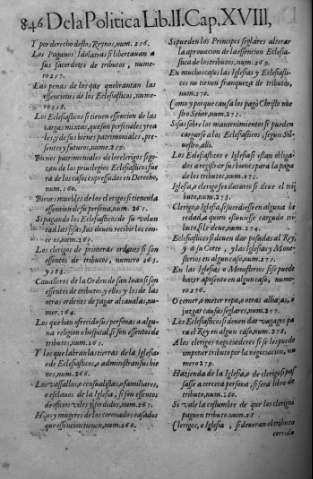 846 De la Politica Lib.II. Cap. XVIII,
Y por derecho destos Reynos, num. 256.
Los Paganos Idolatras si libertauan a
sus sacerdotes de tributos, nume-
ro 257.
Las penas de los que quebrantan las
exenciones de los Eclesiasticos, nume-
ro 258.
Los Eclesiasticos si tienen exencion de las
cargas mixtas, que son personales y rea-
les, y de sus bienes patrimoniales, pre-
sentes y futuros, num. 259.
Bienes patrimoniales de los clerigos si go-
zan de los priuilegios Eclesiasticos fue-
ra de los casos expressados en Derecho,
num. 260.
Bienes muebles de los clerigos si tienen la
exencion de su persona, num. 261.
Si pagando los Eclesiasticos de su volun-
tad las sisas, sus deuen recibir los cen-
sos, num. 262.
Los clerigos de primeras ordenes si son
essentos de tributos, numero 263.
y 265.
Caualleros de la Orden de san Iuan si son
essentos de tributos, y ellos y los de las
otras ordenes de pagar alcaualas, nu-
mer. 264.
Los que han ofrecido sus personas a algu-
na religion o hospital, si son essentos de
tributos, num. 265.
Y los que labran las tierras de la Iglesia
o de Eclesiasticos, o administran sus bie-
nes, num. 266.
Los vassallos, o censualistas, o familiares,
o esclauos de la Iglesia, si son essentos
de oficios viles y pedidos, num. 267.
Hijos y mugeres de los coronados casados
que essenciones tienen, num. 268.
Si pueden los Principes seglares alterar
la aprouacion de la essencion Eclesia-
stica de los tributos, num. 269.
En muchos casos las Iglesias y Eclesiasti-
cos no tienen franqueza de tributos,
num. 270.
Como y porque causa los pagò Christo nue-
stro Señor, num. 271.
Sisas sobre los mantenimientos si se pueden
cargar a los Eclesiasticos, segun Sil-
uestro, alli.
Los Eclesiasticos e Iglesia si estan obliga-
dos a registrar sus bienes para la paga
de los tributos, num. 272.
Iglesia, o clerigo si es declarante si deue el tri-
buto, num. 273.
Clerigo, Iglesia, si sucediesse en alguna he-
redad, a quien estuuiesse cargado tri-
buto, si le deue, num. 274.
Eclesiasticos si deuen dar posadas al Rey,
y a su Corte, y las Iglesias y Mone-
sterios en algun caso, num. 275.
En las Iglesias o Monesterios si se puede
hazer aposento en algun caso, nume-
ro 276.
O comer, o meter ropa, o otras alhajas, o
juzgar causas seglares, num. 277.
Los Eclesiasticos si deuen dar vagages pa-
ra el Rey en algun caso, num. 278.
A los clerigos negociadores si se les puede
imponer tributo por la negociacion, nu-
mero 279.
Hazienda de la Iglesia, o de clerigo si pas-
sasse a tercera persona, si sera libre de
tributo, num. 280.
Si vale la costumbre de que los clerigos
paguen tributo, num. 281.
Clerigos, o Iglesia, si deuen el tributo
corrido